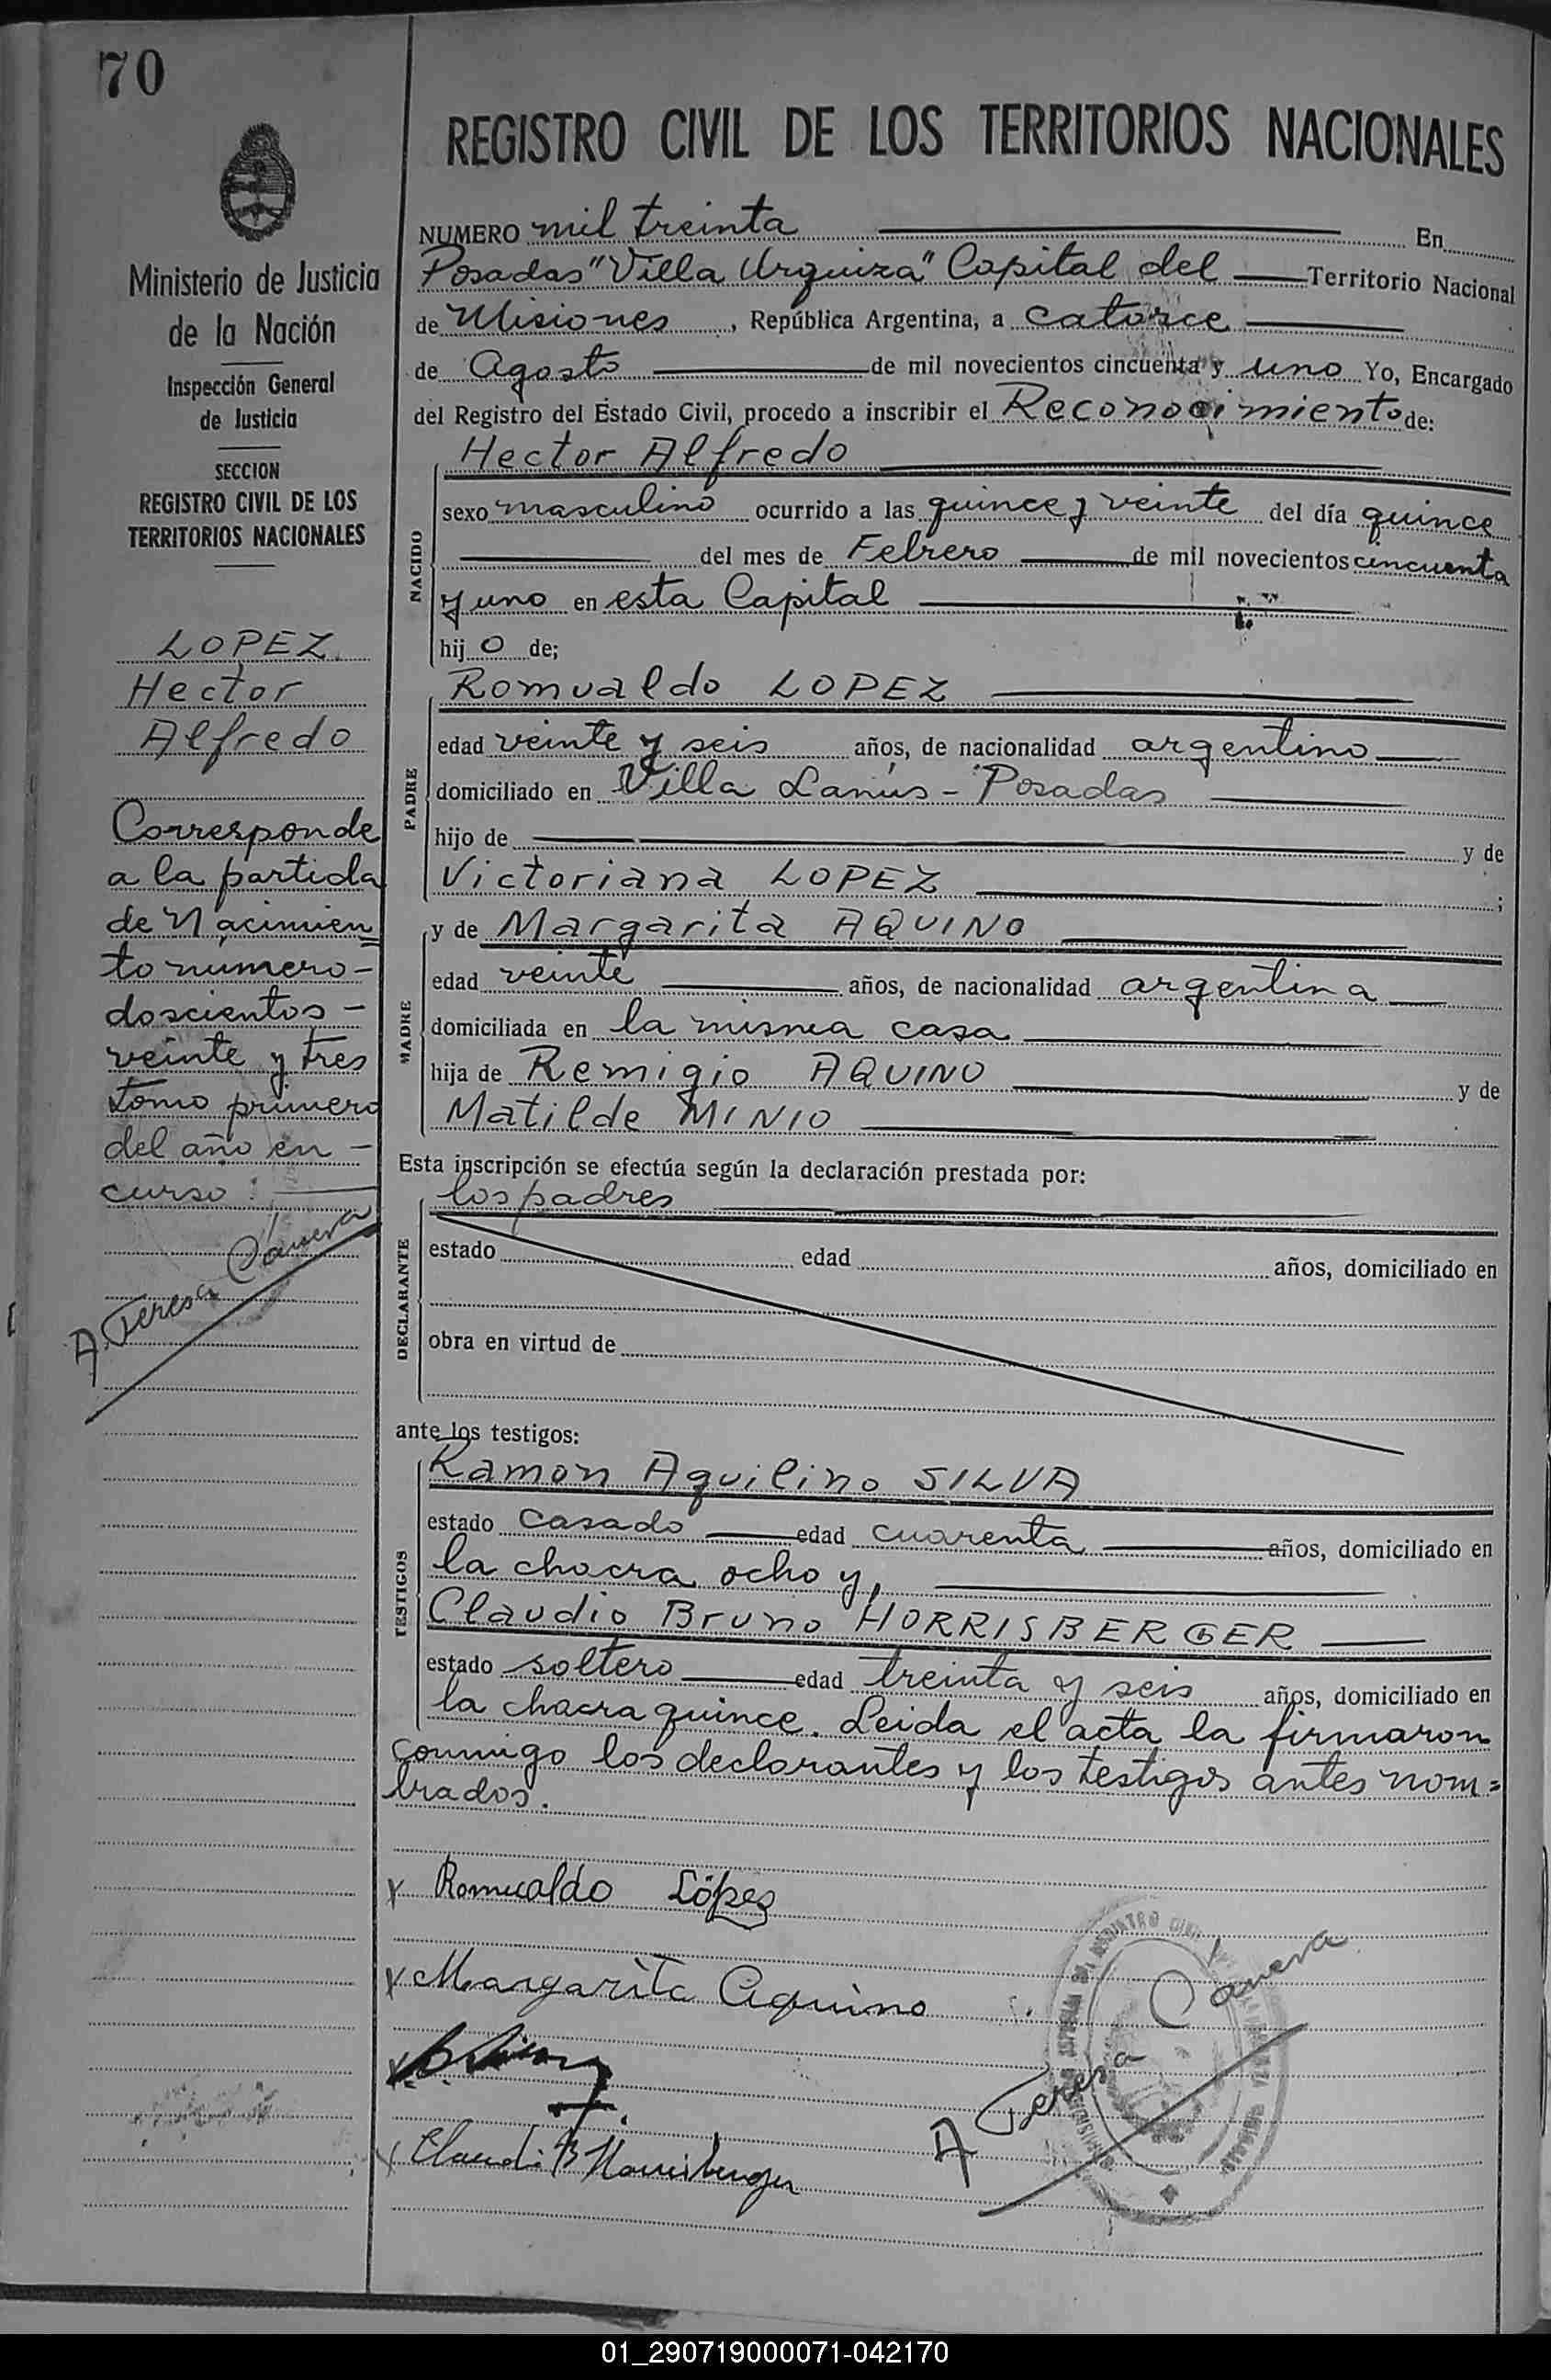 70
REGISTRO CIVIL DE LOS TERRITORIOS NACIONALES
Ministerio de Justicia
de la Nación
Inspección General
de Justicia
SECCION
REGISTRO CIVIL DE LOS
TERRITORIOS NACIONALES
LOPEZ
Hector
Alfredo
Corresponde
a la partida
de Nacimien=
to numero-
doscientos-
veinte y tres
tomo primero
del año en-
curso
A Teresa Cánera
NUMERO mil treinta En
Posadas "Villa Urquiza" Capital del Territorio Nacional
de Misiones, República Argentina, a catorce
de Agosto de mil novecientos cincuenta y uno Yo, Encargado
del Registro del Estado Civil, procedo a inscribir el Reconocimiento de:
NACIDO
Hector Alfredo
sexo masculino ocurrido a las quince y veinte del día quince
del mes de Febrero de mil novecientos cincuenta
y uno en esta Capital
hijo de;
PADRE
Romualdo LOPEZ
edad veinte y seis años, de nacionalidad argentino
domiciliado en Villa Lanús - Posadas
hijo de y de
Victoriana LOPEZ ;
MADRE
y de Margarita AQUINO
edad veinte años, de nacionalidad argentina
domiciliada en la misma casa
hija de Remigio AQUINO y de
Matilde MINIO
Esta inscripción se efectúa según la declaración prestada por:
DECLARANTE
los padres
estado edad años, domiciliado en
obra en virtud de
ante los testigos:
TESTIGOS
Ramon Aquilino SILVA
estado casado edad cuarenta años, domiciliado en
la chacra ocho y,
Claudio Bruno HORRISBERGER
estado soltero edad treinta y seis años, domiciliado en
la chacra quince. Leida el acta la firmaron
conmigo los declarantes y los testigos antes nom=
brados.
x Romualdo López
x Margarita Aquino
x
x Claudio B Horrisberger
A Teresa Cánera
01_290719000071-042170